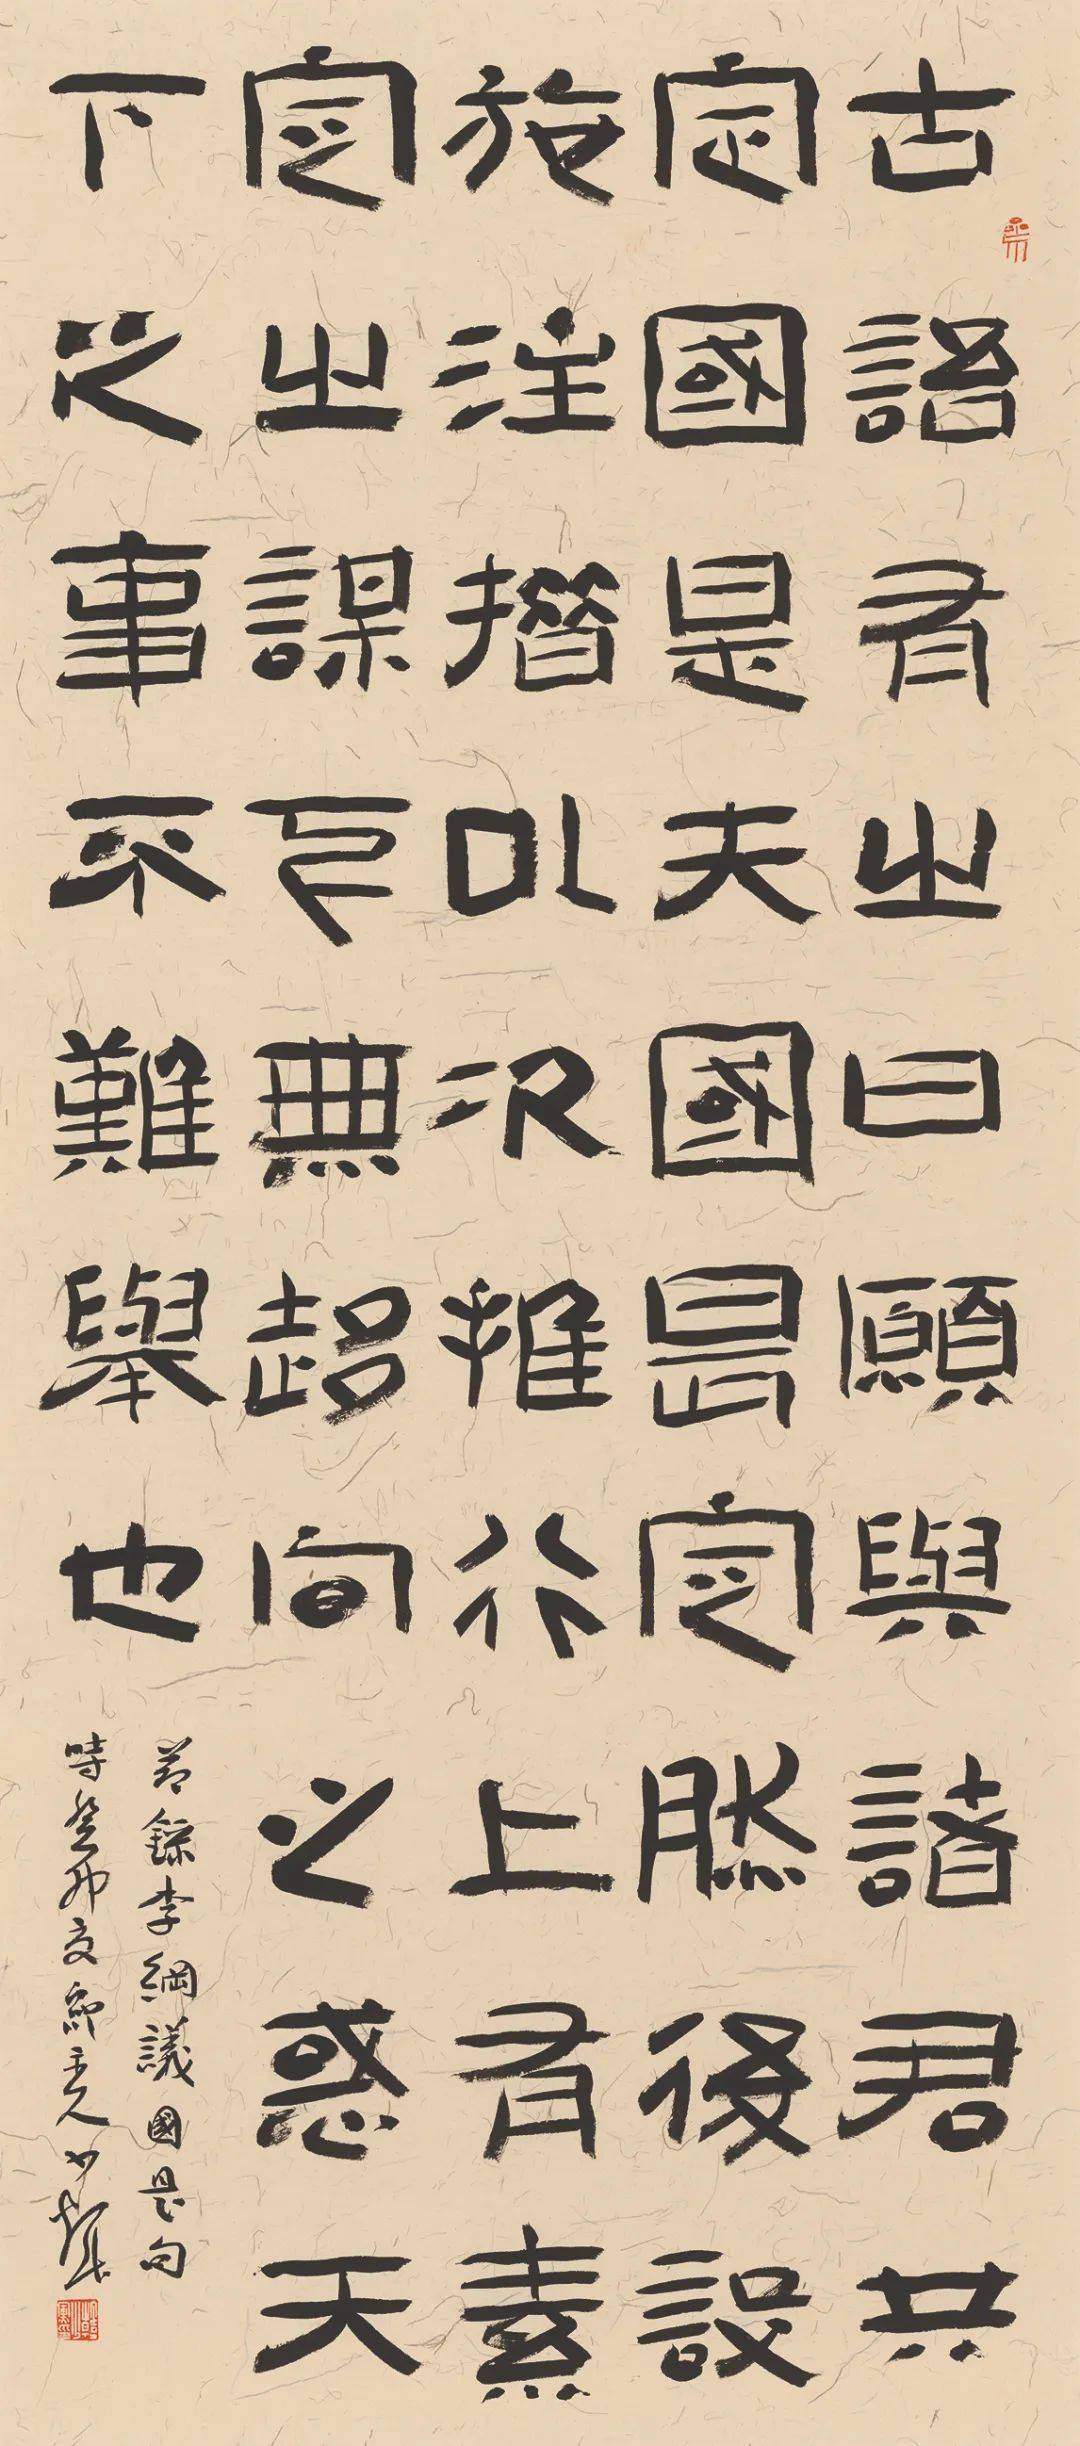 古語有之曰願與諸君共
定國是夫國是定然後設
施注措以次推行上有素
定之謀下無趨向之惑天
下之事不難舉也
節錄李綱議國是句
時癸卯夏